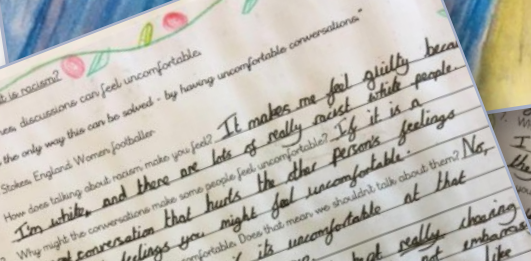 t is racism?
es, discussions can feel uncomfortable.
the only way this can be solved - by having uncomfortable conversations"
Stokes, England Women footballer
How does talking about racism make you feel? It makes me feel guilty becau
I'm white, and there are lots of really racist white people.
Why might the conversations make some people feel uncomfortable? If it is a
conversation that hurts the other person's feelings
feelings you might feel uncomfortable.
comfortable. Does that mean we shouldn't talk about them? No,
it's uncomfortable at that
really
not
like